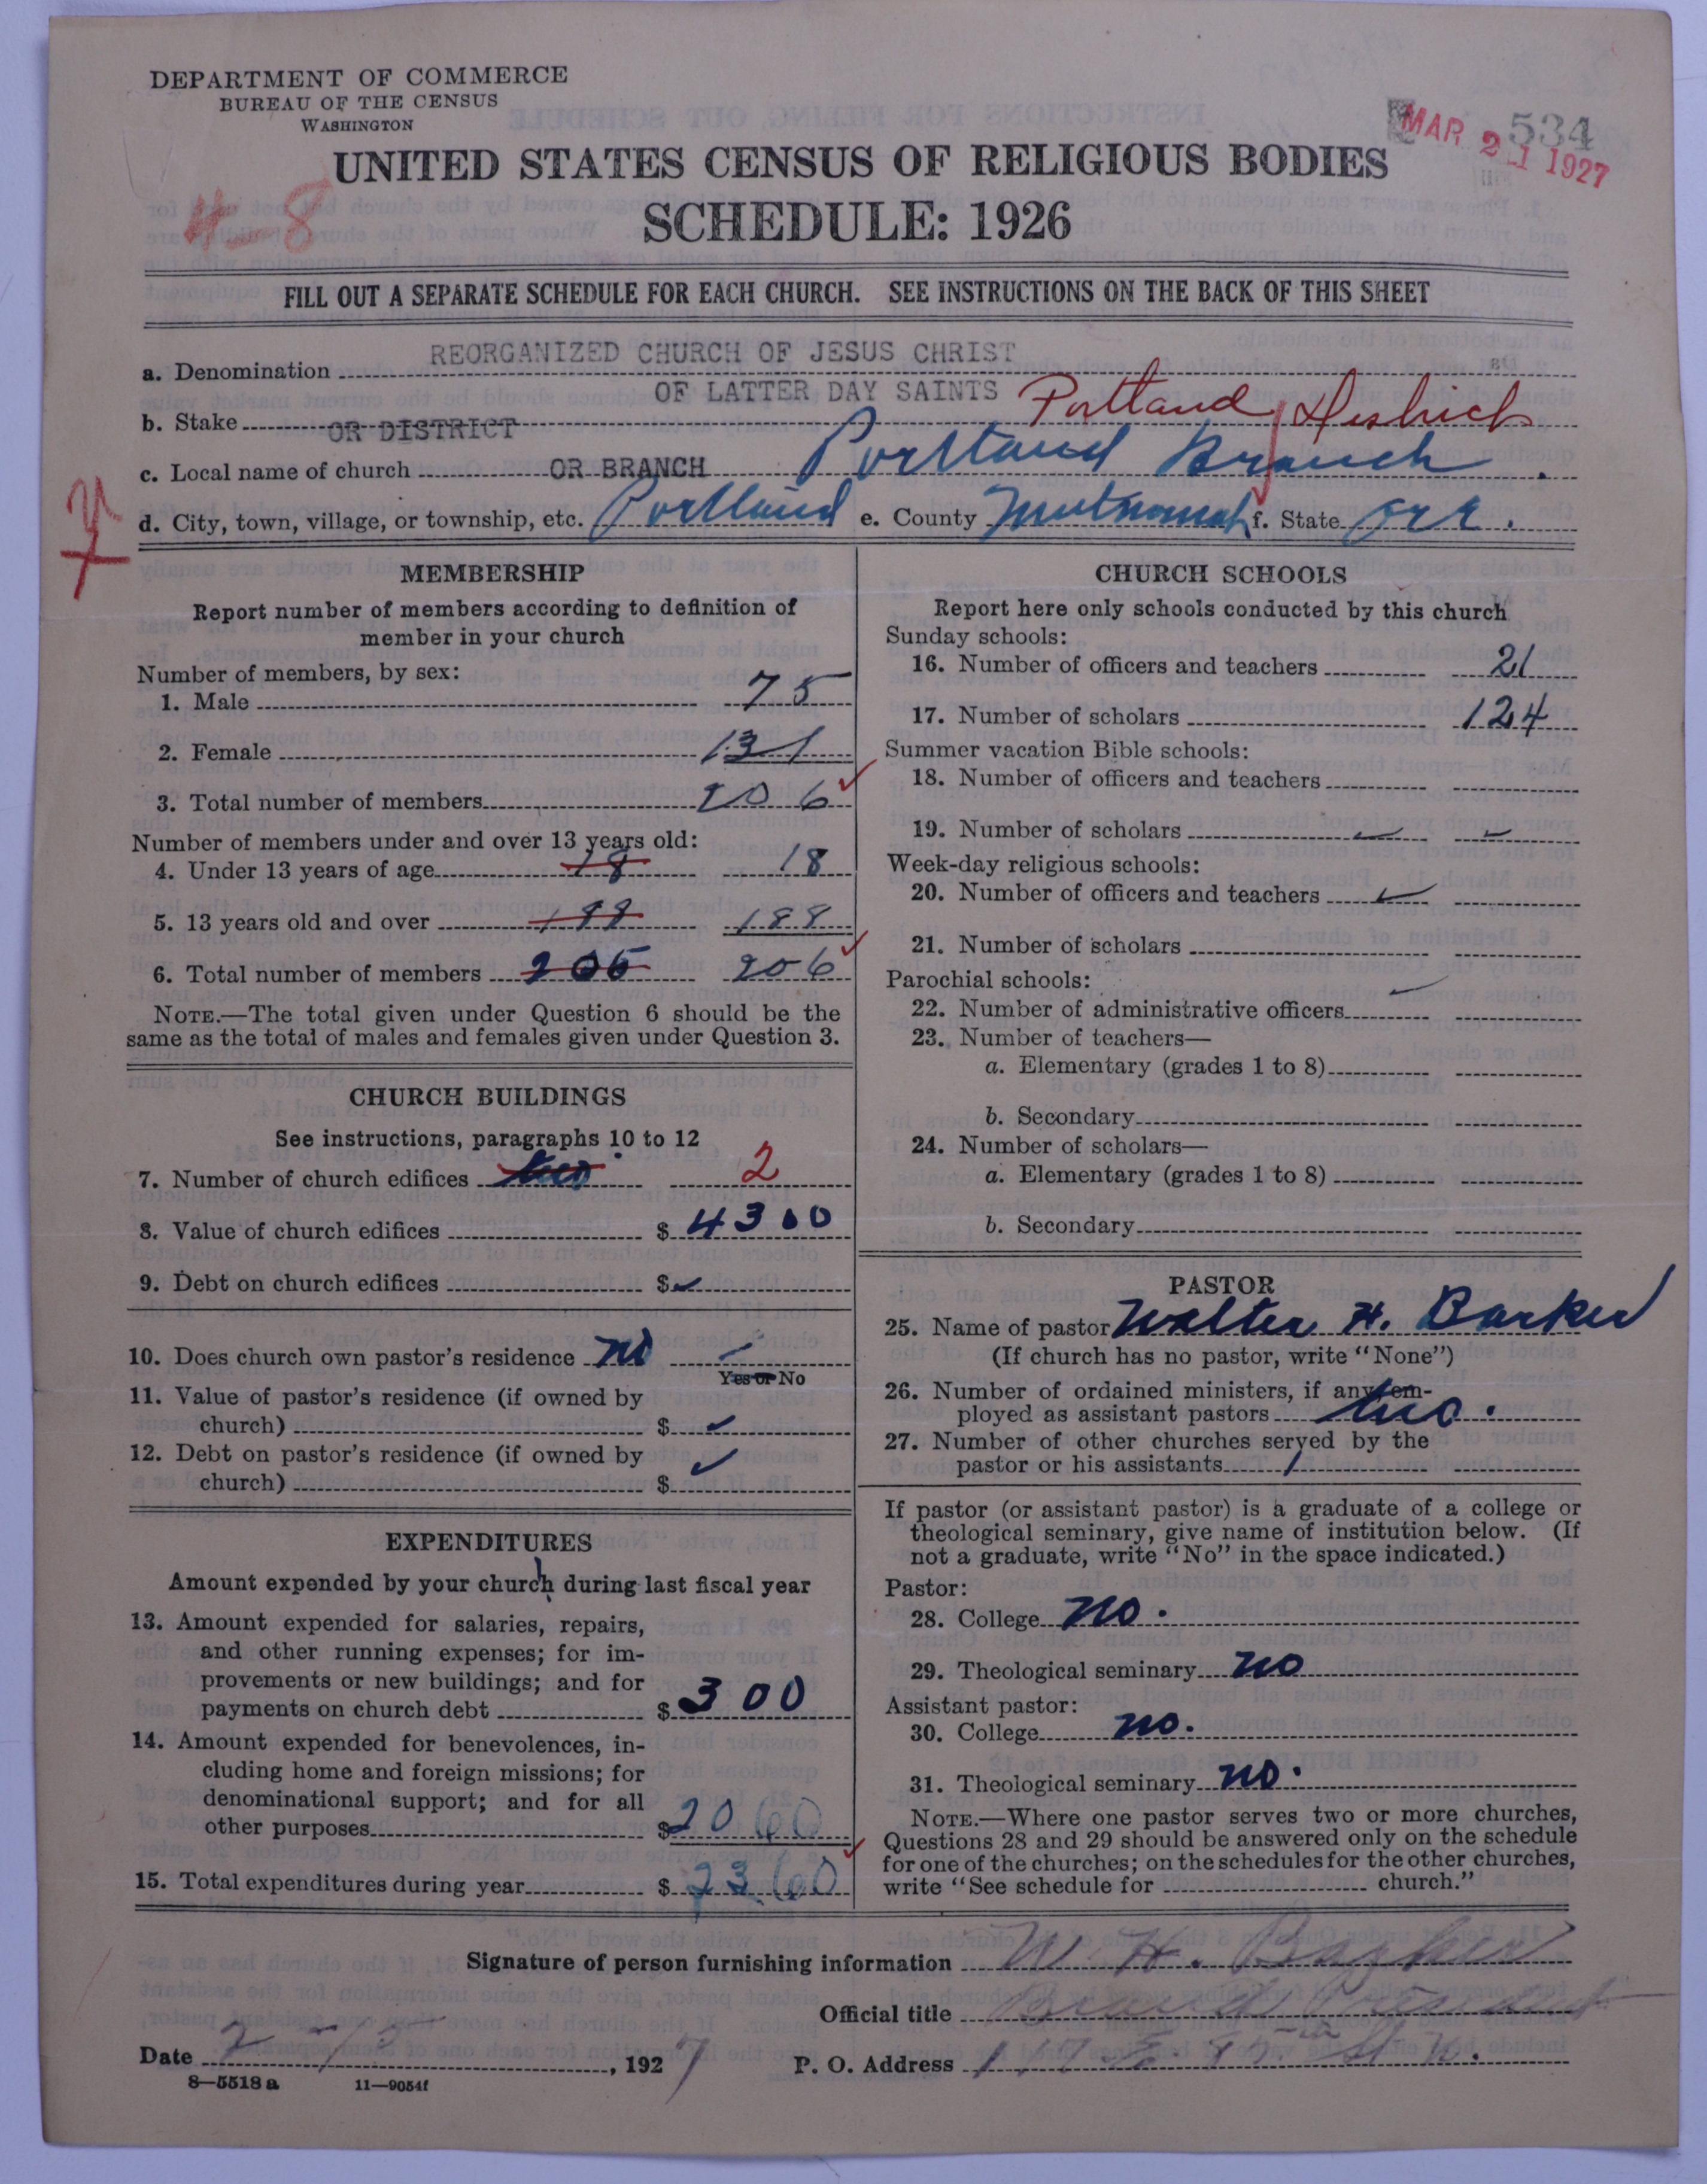 DEPARTMENT OF COMMERCE
BUREAU OF THE CENSUS
WASHINGTON
534
MAR 21 1927
UNITED STATES CENSUS OF RELIGIOUS BODIES
4-8
SCHEDULE: 1926
FILL OUT A SEPARATE SCHEDULE FOR EACH CHURCH. SEE INSTRUCTIONS ON THE BACK OF THIS SHEET
a. Denomination REORGANIZED CHURCH OF JESUS CHRIST
OF LATTER DAY SAINTS
b. Stake OR DISTRICT Portland District
c. Local name of church OR BRANCH Portland Branch.
d. City, town, village, or township, etc. Portland e. County Multnomah f. State Ore.
MEMBERSHIP
Report number of members according to definition of
member in your church
Number of members, by sex:
1. Male 75
2. Female 131
3. Total number of members 206
Number of members under and over 13 years old:
4. Under 13 years of age 18 18
5. 13 years old and over 188 188
6. Total number of members 206 206
NOTE.—The total given under Question 6 should be the
same as the total of males and females given under Question 3.
CHURCH BUILDINGS
See instructions, paragraphs 10 to 12
7. Number of church edifices two 2
8. Value of church edifices $ 4300
9. Debt on church edifices $
10. Does church own pastor's residence no
Yes or No
11. Value of pastor's residence (if owned by
church) $
12. Debt on pastor's residence (if owned by
church) $
EXPENDITURES
Amount expended by your church during last fiscal year
13. Amount expended for salaries, repairs,
and other running expenses; for im-
provements or new buildings; and for
payments on church debt $ 300
14. Amount expended for benevolences, in-
cluding home and foreign missions; for
denominational support; and for all
other purposes $ 2060
15. Total expenditures during year $ 2360
CHURCH SCHOOLS
Report here only schools conducted by this church
Sunday schools:
16. Number of officers and teachers 21
17. Number of scholars 124
Summer vacation Bible schools:
18. Number of officers and teachers
19. Number of scholars
Week-day religious schools:
20. Number of officers and teachers
21. Number of scholars
Parochial schools:
22. Number of administrative officers
23. Number of teachers—
a. Elementary (grades 1 to 8)
b. Secondary
24. Number of scholars—
a. Elementary (grades 1 to 8)
b. Secondary
PASTOR
25. Name of pastor Walter H. Barker
(If church has no pastor, write "None")
26. Number of ordained ministers, if any, em-
ployed as assistant pastors two.
27. Number of other churches served by the
pastor or his assistants 1
If pastor (or assistant pastor) is a graduate of a college or
theological seminary, give name of institution below. (If
not a graduate, write "No" in the space indicated.)
Pastor:
28. College no.
29. Theological seminary no
Assistant pastor:
30. College no.
31. Theological seminary no.
NOTE.—Where one pastor serves two or more churches,
Questions 28 and 29 should be answered only on the schedule
for one of the churches; on the schedules for the other churches,
write "See schedule for church."
Signature of person furnishing information W. H. Barker
Official title Branch President
Date 2-15, 1927 P. O. Address St N.
8—5518 a 11—9054f